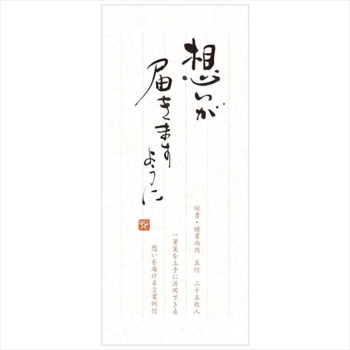 想いが
届きます
ように
縦書・横書両用 五行 二十五枚入
一筆箋を上手に活用できる
想いを届ける言葉例付